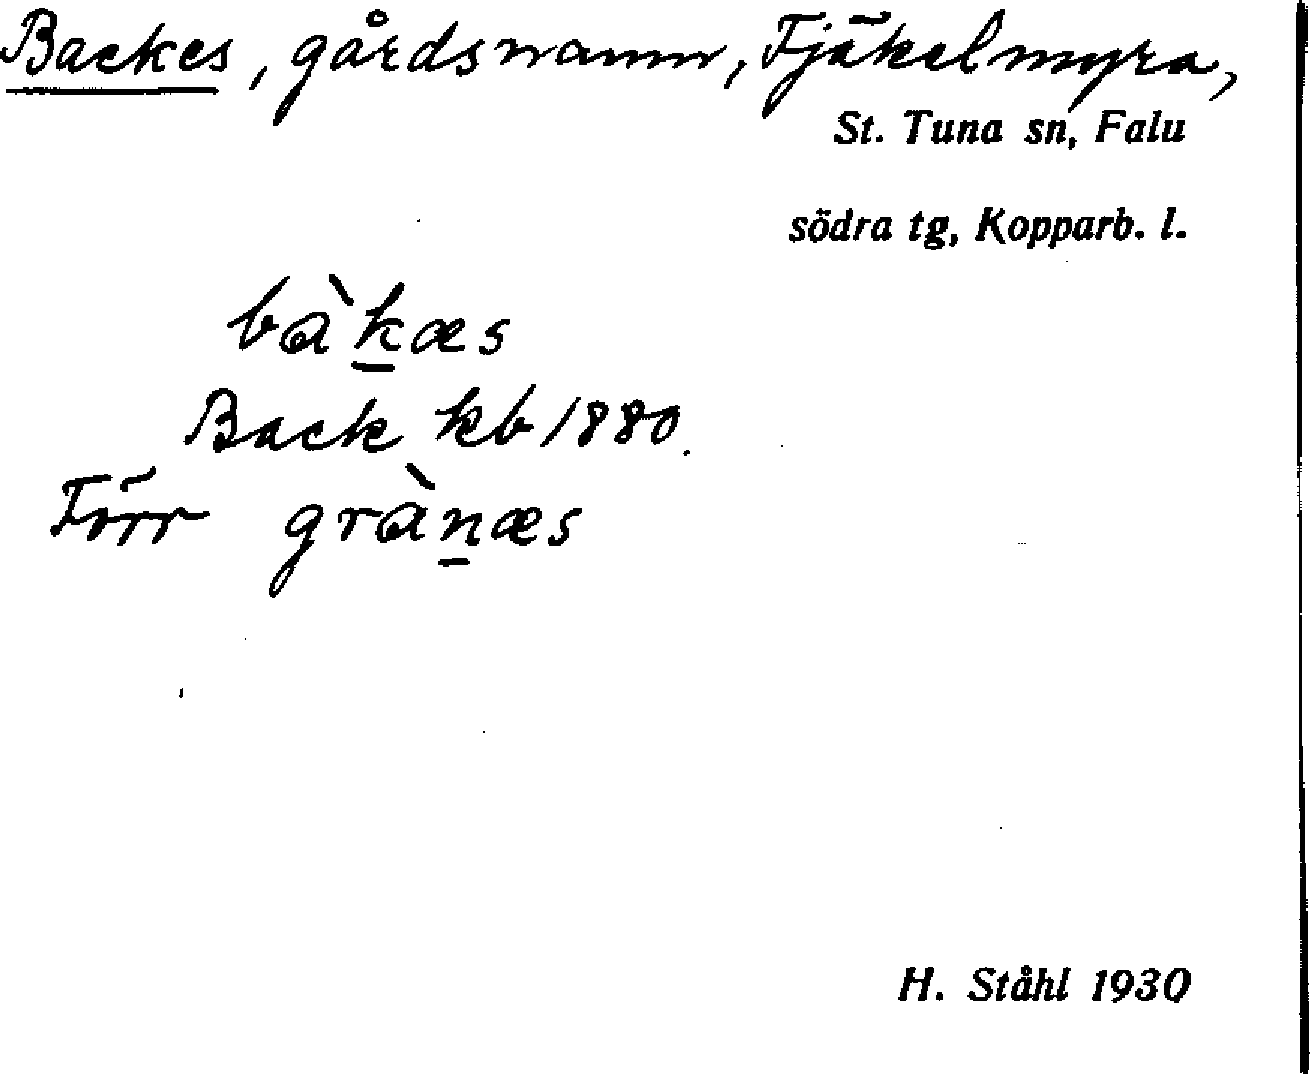 Backes, gårdsnamn, Fjäkelmyra,
St. Tuna sn, Falu
södra tg, Kopparb. l.
bàk̲æs
Back kb 1880.
Förr gràn̲æs
H. Ståhl 1930